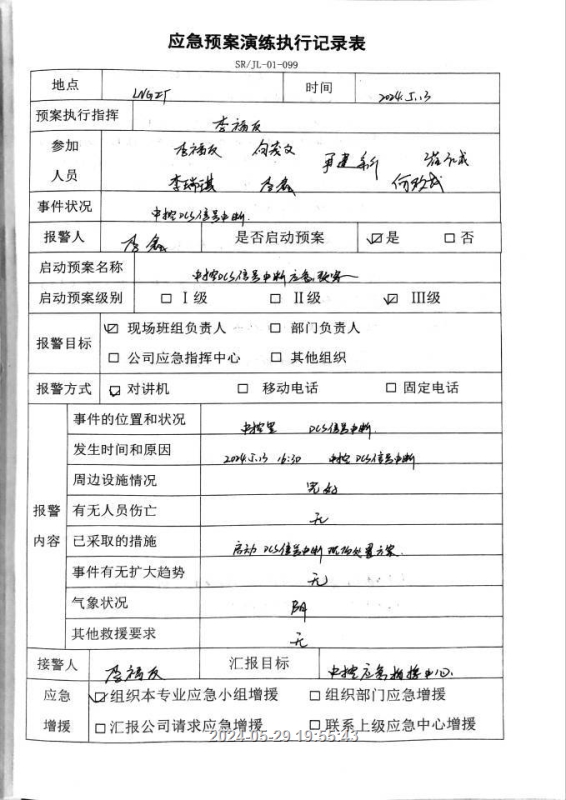 应急预案演练执行记录表
SR/JL-01-099
地点 时间 2024.5.13
预案执行指挥 李福友
参加人员 李福友
李瑞琪 李磊
事件状况 中控DCS信号中断.
报警人 李磊 是否启动预案 ☑是 □否
启动预案名称 中控DCS信号中断应急预案
启动预案级别 □Ⅰ级 □Ⅱ级 ☑Ⅲ级
报警目标 ☑现场班组负责人 □部门负责人
□公司应急指挥中心 □其他组织
报警方式 ☑对讲机 □移动电话 □固定电话
报警内容
事件的位置和状况 中控室 DCS信号中断.
发生时间和原因 2024.5.13 16:30 中控DCS信号中断
周边设施情况 完好
有无人员伤亡 无
已采取的措施 启动DCS信号中断现场处置方案.
事件有无扩大趋势 无
气象状况 阴
其他救援要求 无
接警人 李福友 汇报目标 中控应急指挥中心.
应急增援 ☑组织本专业应急小组增援 □组织部门应急增援
□汇报公司请求应急增援 □联系上级应急中心增援
2024-05-29 19:55:43